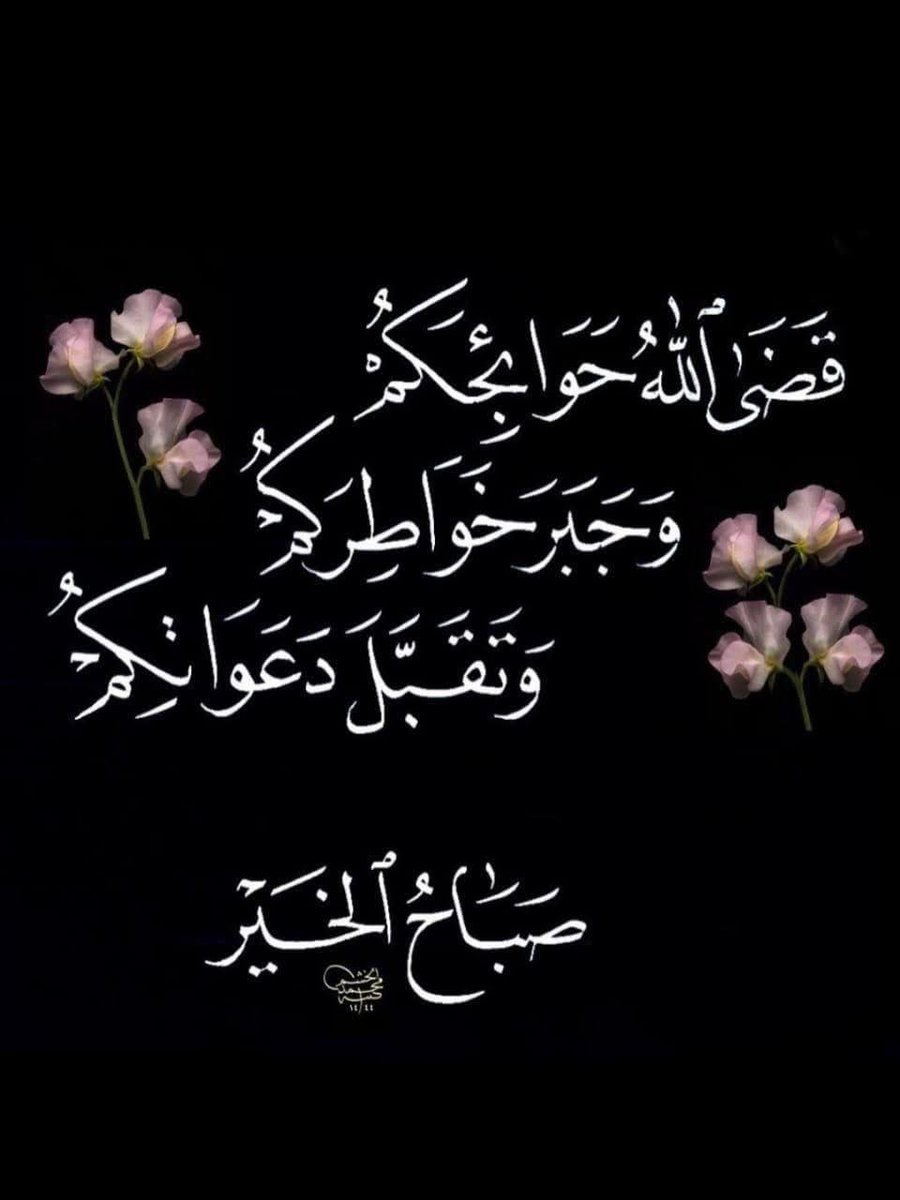 قَضَىٰ ٱللَّهُ حَوَائِجَكُمْ
وَجَبَرَ خَوَاطِرَكُمْ
وَتَقَبَّلَ دَعَوَاتِكُمْ
صَبَاحُ ٱلْخَيْرِ
كتبه محمد
١٤٤٤